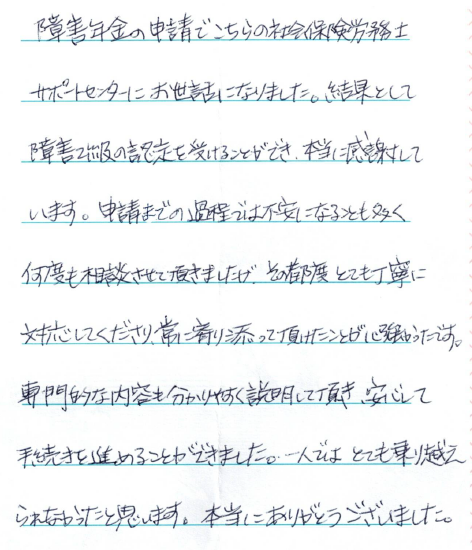 障害年金の申請でこちらの社会保険労務士
サポートセンターにお世話になりました。結果として
障害2級の認定を受けることができ、本当に感謝して
います。申請までの過程では不安になることも多く
何度も相談させて頂きましたが、その都度とても丁寧に
対応してくださり、常に寄り添って頂けたことが心強かったです。
専門的な内容も分かりやすく説明して頂き、安心して
手続きを進めることができました。一人ではとても乗り越え
られなかったと思います。本当にありがとうございました。